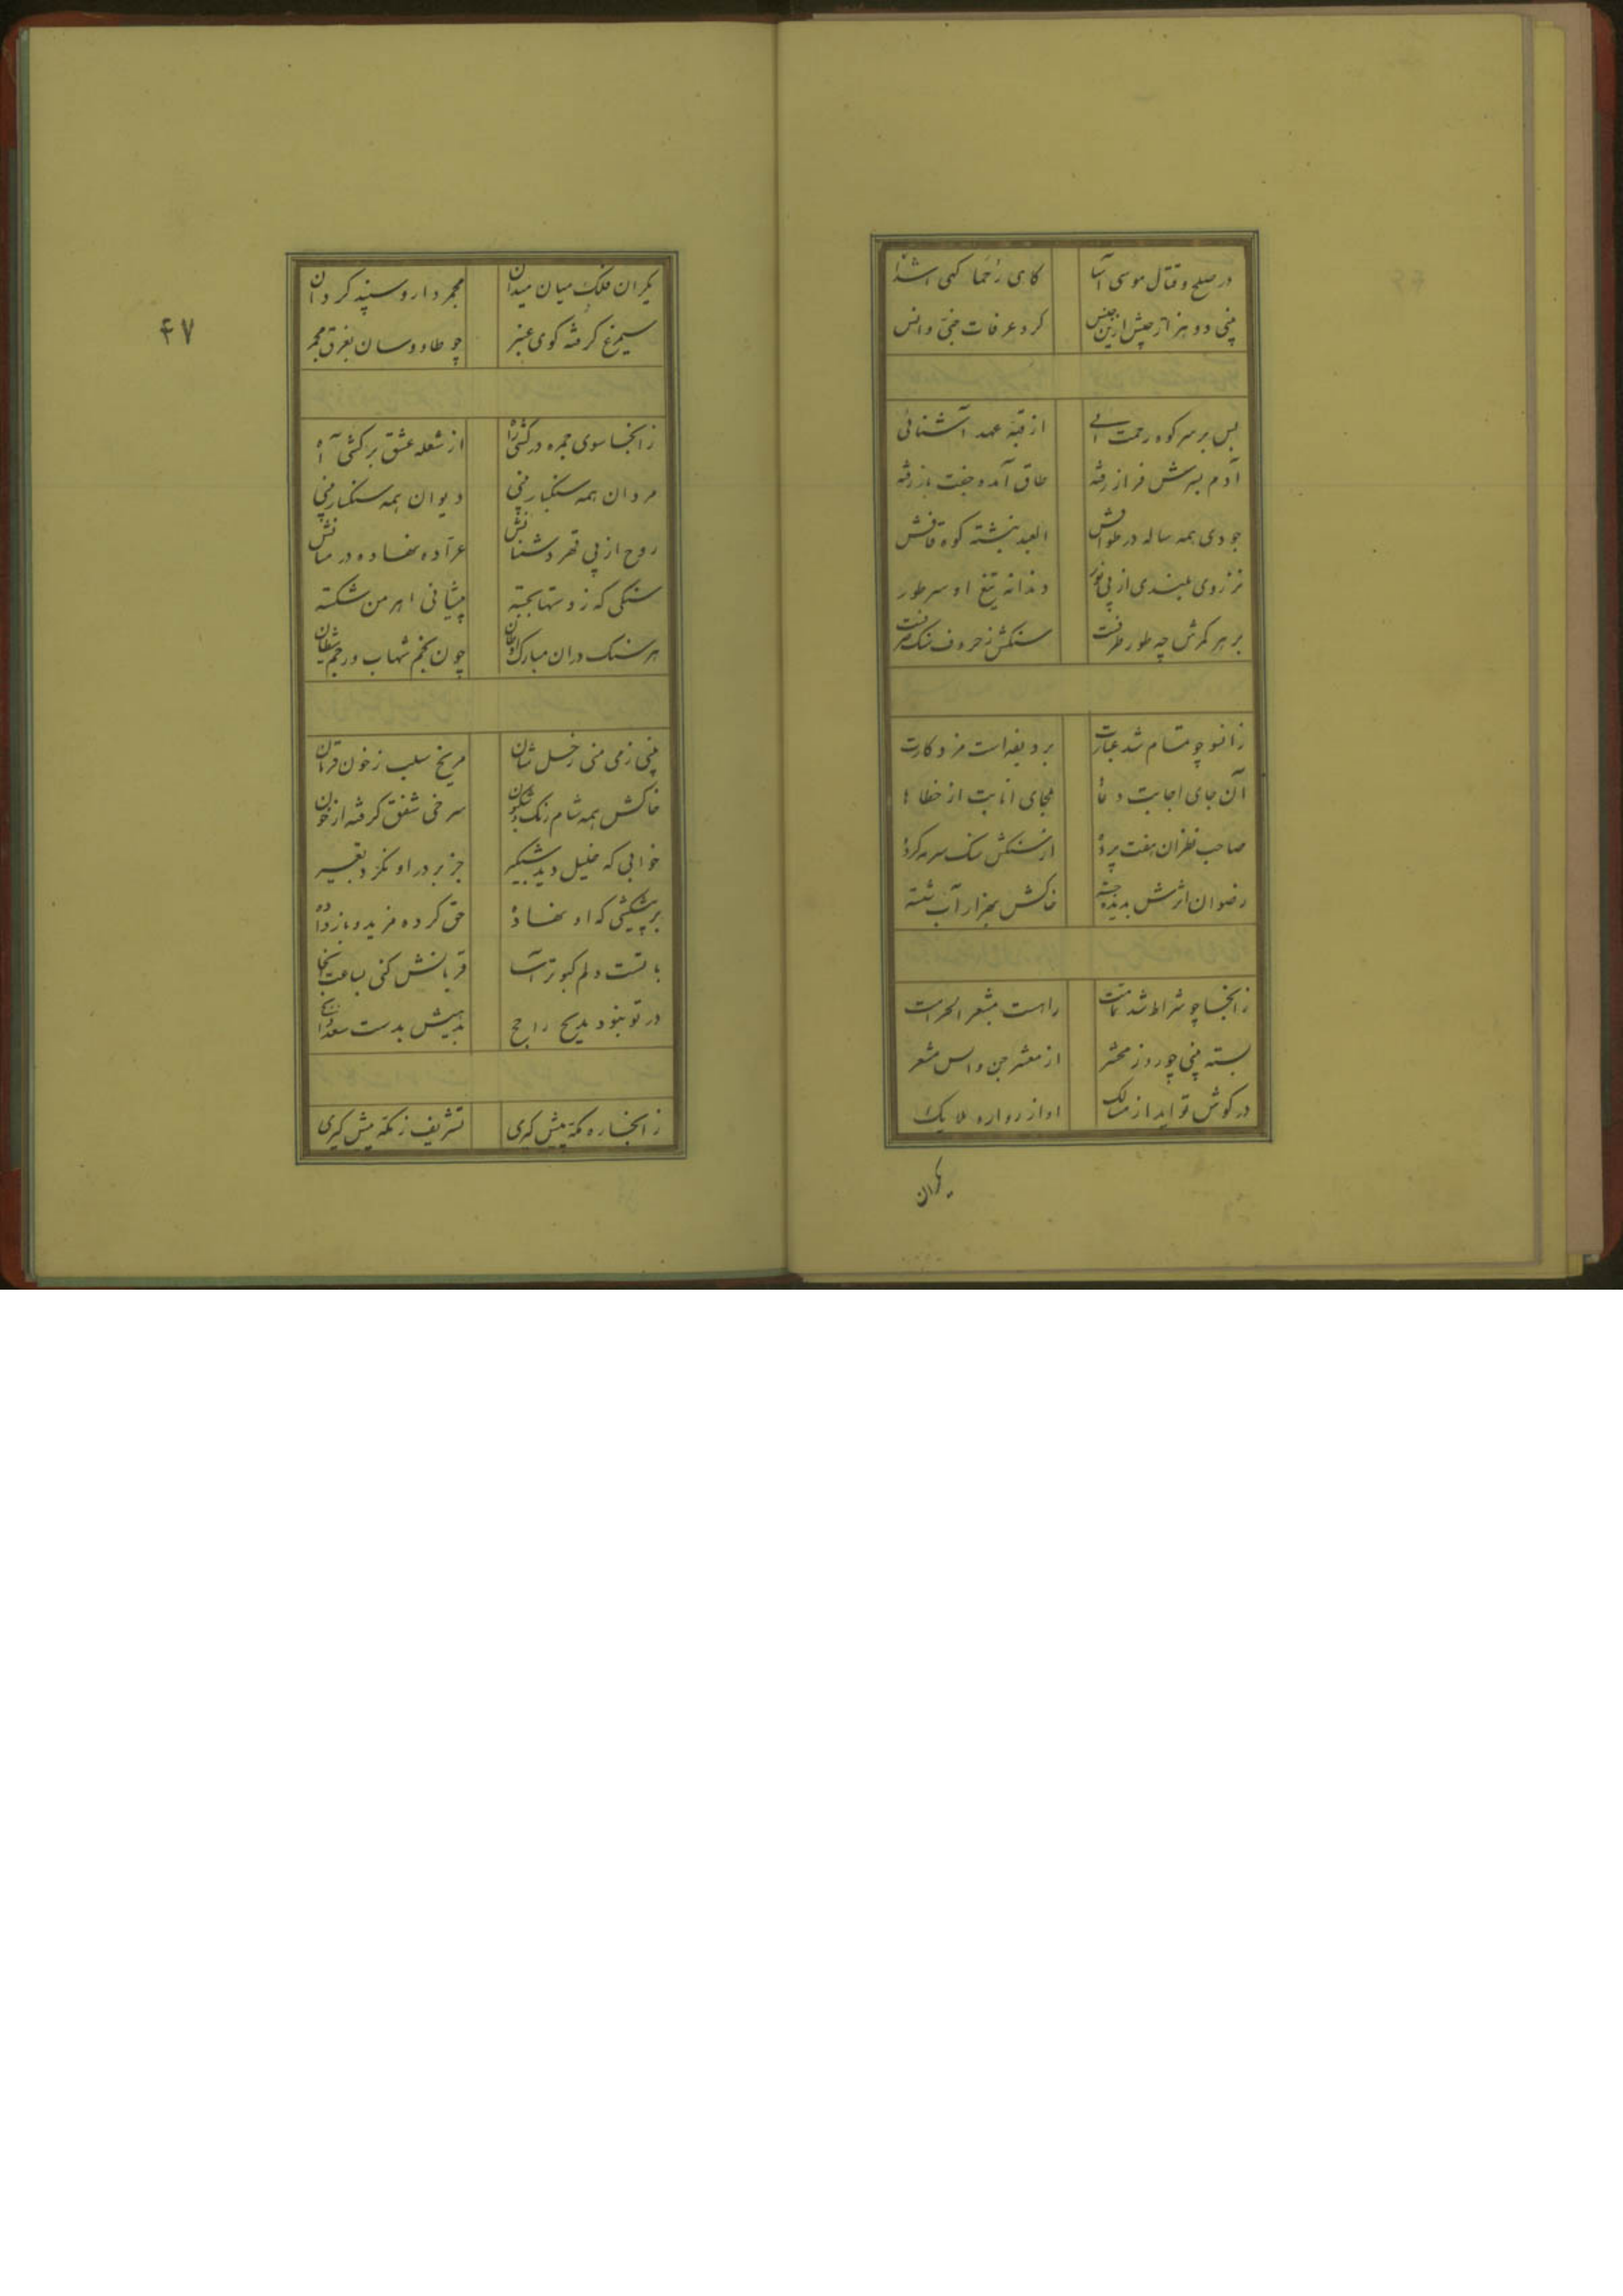 در صلح و قتال موسی آسا کاهی رحما کهی اشدا
بینی دو هزار جیش ازین جنس کرد عرفات جنی و انس
پس بر سر کوه رحمت آیی از قبه عهد آشنائی
آدم بسرش فراز رفته طاق آمده جفت باز رفته
جودی همه ساله در طوافش العبد نبشته کوه قافش
نز روی بلندی از پی نور دندانه تیغ او سر طور
بر هر کمرش چه طور طرفست سنکش ز حروف سنک
زانسو چو مقام شد عبارت بر دیغه است مزد کارت
آن جای اجابت دعا ها ملجای انابت از خطا ها
صاحب نظران هفت پرده از سنکش سنک سرمه کرده
رضوان اثرش بدیده جسته خاکش بهزار آب شسته
زانجا چو شرائط شد تمامت راهست بمشعر الحرامت
بسته بینی چو روز محشر از معشر جن و انس مشعر
در کوش تو آید از مسالک اواز رواره ملایک
یکران
۴۷
یکران فلک میان میدان مجمر دار و سپند کردان
سیمرغ کرفته کوی عنبر چو طاووسان بفرق مجمر
زانجا سوی جمره درکشی راه از شعله عشق برکشی آه
مردان همه سنکبار بینی دیوان همه سنکسار بینی
روح از پی قهر دشمنانش عراده نهاده در میانش
سنکی که ز دستها بجسته پیشانی اهرمن شکسته
هر سنک دران مبارک اوطان چون نجم شهاب و رجم شیطان
بینی زمی منی زحل سان مریخ سلب ز خون قربان
خاکش همه شام رنک سرخی شفق کرفته از خون
خوابی که خلیل دید شبکیر جز بر در او نکرد تعبیر
هر پیشکشی که او نهاده حق کرده مزید و باز داده
با تست دلم کبوتر آسا قربانش کنی بساعت آنجا
در تو بنود بدیح راجح بدهیش بدست سعد ذابح
زانجا ره مکه پیش کیری تشریف ز مکه بیش کیری